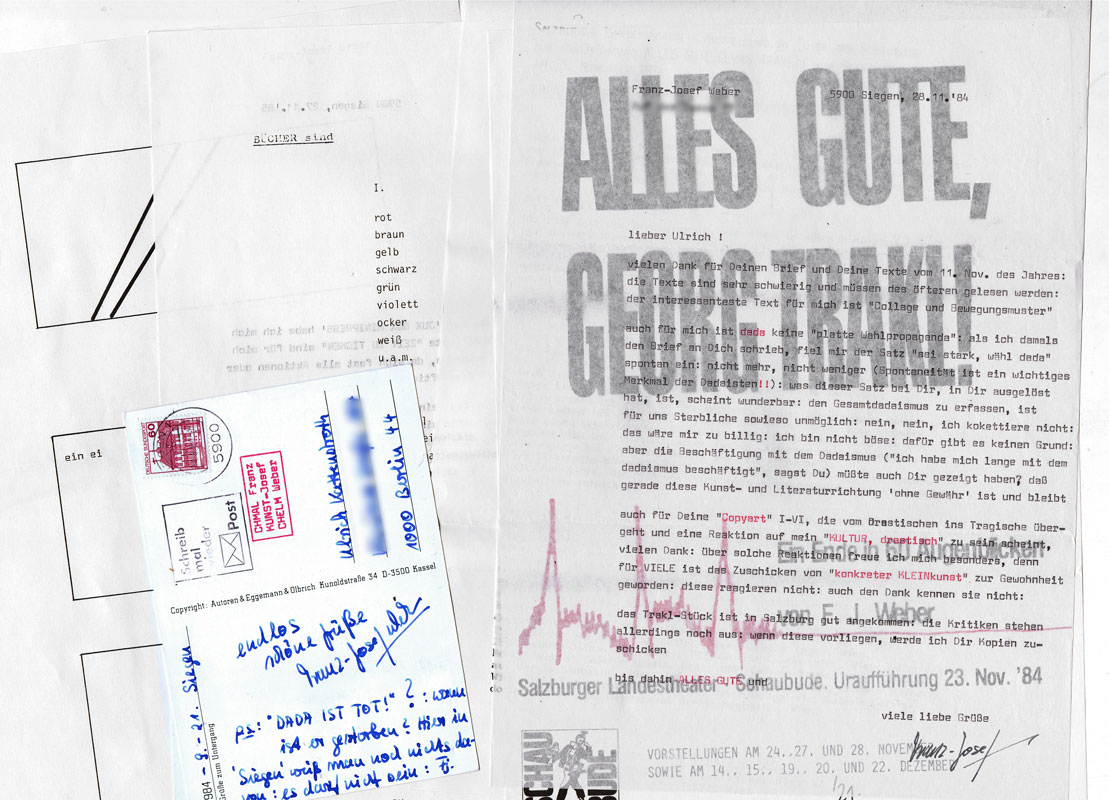 BÜCHER sind
I.
rot
braun
gelb
schwarz
grün
violett
ocker
weiß
u.a.m.
ein ei
DEUTSCHE BUNDESPOST
60
5900
Schreib
mal
wieder
Post
CHMAL Franz
KUNST-Josef
CHELM Weber
1000 Berlin 44
Copyright: Autoren & Eggemann & Olbrich Kunoldstraße 34 D-3500 Kassel
endlos
schöne Grüße
Franz-Josef Weber
PS: "DADA IST TOT!" ? : wann
ist er gestorben? Hier in
'Siegen' weiß man noch nichts da-
von : es darf nicht sein :
1984 - 9. - 21. Siegen
Grüße zum Untergang
ALLES GUTE,
GEORG TRAKL!
Franz-Josef Weber
5900 Siegen, 28.11.'84
lieber Ulrich !
vielen Dank für Deinen Brief und Deine Texte vom 11. Nov. des Jahres:
die Texte sind sehr schwierig und müssen des öfteren gelesen werden:
der interessanteste Text für mich ist "Collage und Bewegungsmuster"
auch für mich ist dada keine "platte Wahlpropaganda": als ich damals
den Brief an Dich schrieb, fiel mir der Satz "sei stark, wähl dada"
spontan ein: nicht mehr, nicht weniger (Spontaneität ist ein wichtiges
Merkmal der Dadaisten!!): was dieser Satz bei Dir, in Dir ausgelöst
hat, ist, scheint wunderbar: den Gesamtdadaismus zu erfassen, ist
für uns Sterbliche sowieso unmöglich: nein, nein, ich kokettiere nicht:
das wäre mir zu billig: ich bin nicht böse: dafür gibt es keinen Grund:
aber die Beschäftigung mit dem Dadaismus ("ich habe mich lange mit dem
dadaismus beschäftigt", sagst Du) müßte auch Dir gezeigt haben, daß
gerade diese Kunst- und Literaturrichtung 'ohne Gewähr' ist und bleibt
auch für Deine "Copyart" I-VI, die vom Drastischen ins Tragische über-
geht und eine Reaktion auf mein "KULTUR, drastisch" zu sein scheint,
vielen Dank: über solche Reaktionen freue ich mich besonders, denn
für VIELE ist das Zuschicken von "konkreter KLEINkunst" zur Gewohnheit
geworden: diese reagieren nicht: auch den Dank kennen sie nicht:
das Trakl-Stück ist in Salzburg gut angekommen: die Kritiken stehen
allerdings noch aus: wenn diese vorliegen, werde ich Dir Kopien zu-
schicken
bis dahin ALLES GUTE und
Ein Ende in 60 Augenblicken
von F. J. Weber
Salzburger Landestheater - Schaubude. Uraufführung 23. Nov. '84
viele liebe Grüße
Franz-Josef
SCHAU
BUDE
VORSTELLUNGEN AM 24., 27. UND 28. NOVEMBER
SOWIE AM 14., 15., 19., 20. UND 22. DEZEMBER